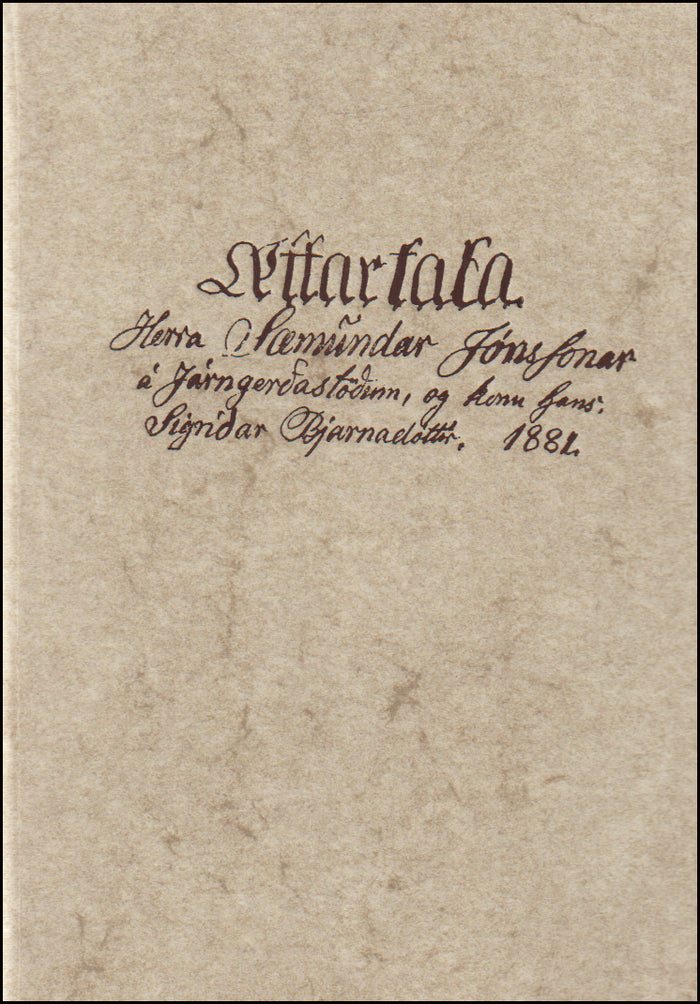 Ættartala.
Herra Sæmũndar Jónssonar
á Járngerðastöðum, og konu hans.
Sigríðar Bjarnadóttir. 1881.